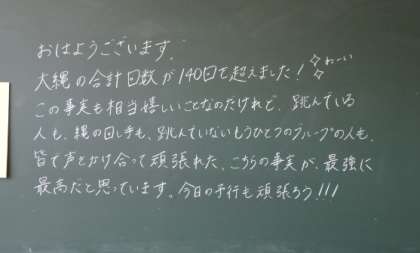 おはようございます。
大縄の合計回数が140回を超えました！わーい
この事実も相当嬉しいことなのだけれど、跳んでいる
人も、縄の回し手も、跳んでいないもうひとつのグループの人も、
皆で声をかけ合って頑張れた、こちらの事実が、最強に
最高だと思っています。今日の予行も頑張ろう!!!